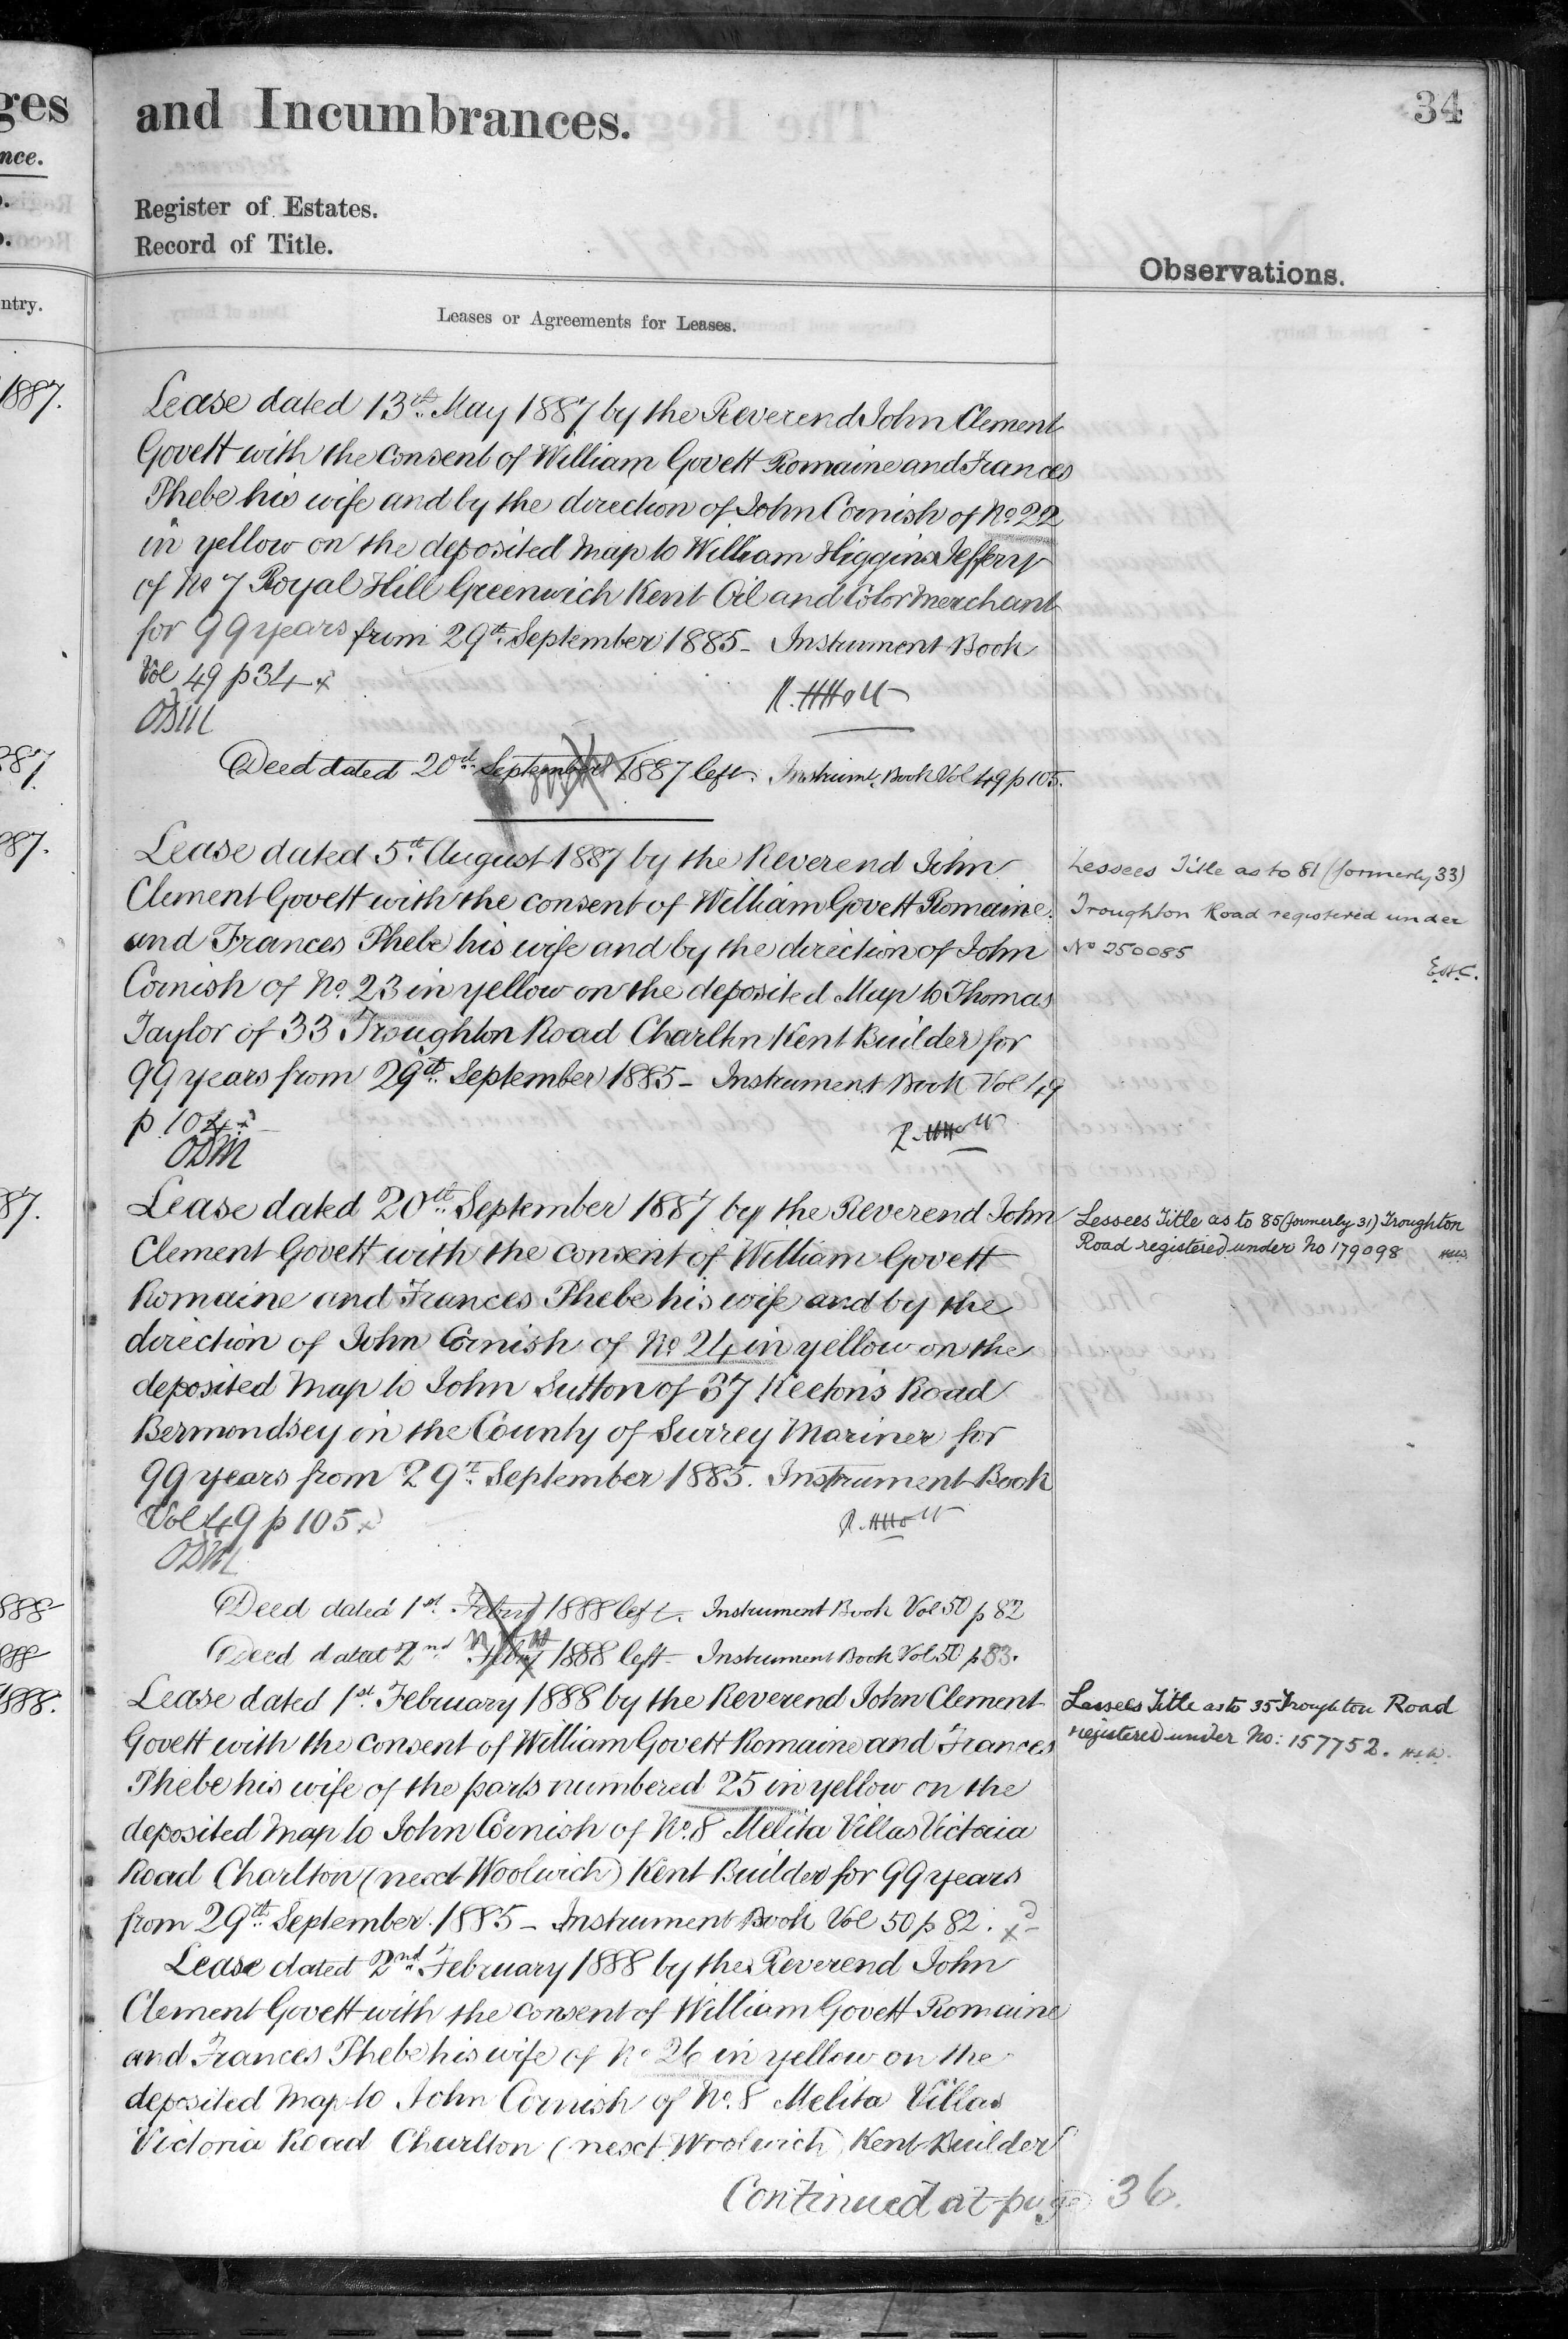 ges
nce.
ntry.
1887.
887.
887.
87.
888
888
1888.
and Incumbrances.
34
Register of Estates.
Record of Title.
Observations.
Leases or Agreements for Leases.
Lease dated 13th May 1887 by the Reverend John Clement
Govett with the consent of William Govett Romaine and Frances
Phebe his wife and by the direction of John Cornish of No. 22
in yellow on the deposited Map to William Higgins Jeffery
of No 7 Royal Hill Greenwich Kent Oil and Color Merchant
for 99 years from 29th September 1885 - Instrument Book
Vol 49 p 34 x
Deed dated 20th September 1887 left. Instrumt. Book Vol 49 p 105.
Lease dated 5th August 1887 by the Reverend John
Clement Govett with the consent of William Govett Romaine
and Frances Phebe his wife and by the direction of John
Cornish of No. 23 in yellow on the deposited Map to Thomas
Taylor of 33 Troughton Road Charlton Kent Builder for
99 years from 29th September 1885 - Instrument Book Vol 49
p 104 x
Lessees Title as to 81 (formerly 33)
Troughton Road registered under
No 250085
E.H.C.
Lease dated 20th September 1887 by the Reverend John
Clement Govett with the consent of William Govett
Romaine and Frances Phebe his wife and by the
direction of John Cornish of No 24 in yellow on the
deposited Map to John Sutton of 37 Keeton's Road
Bermondsey in the County of Surrey Mariner for
99 years from 29th September 1885. Instrument Book
Vol 49 p 105 x
Lessees Title as to 85 (formerly 31) Troughton
Road registered under No 179098
Deed dated 1st Febry 1888 left. Instrument Book Vol 50 p 82
Deed dated 2nd Febry 1888 left - Instrument Book Vol 50 p 83.
Lease dated 1st February 1888 by the Reverend John Clement
Govett with the consent of William Govett Romaine and Frances
Phebe his wife of the parts numbered 25 in yellow on the
deposited Map to John Cornish of No. 8 Melita Villas Victoria
Road Charlton (next Woolwich) Kent Builder for 99 years
from 29th September 1885 - Instrument Book Vol 50 p 82. x
Lessees Title as to 35 Troughton Road
registered under No: 157752.
Lease dated 2nd February 1888 by the Reverend John
Clement Govett with the consent of William Govett Romaine
and Frances Phebe his wife of No 26 in yellow on the
deposited Map to John Cornish of No. 8 Melita Villas
Victoria Road Charlton (next Woolwich) Kent Builder
Continued at page 36.